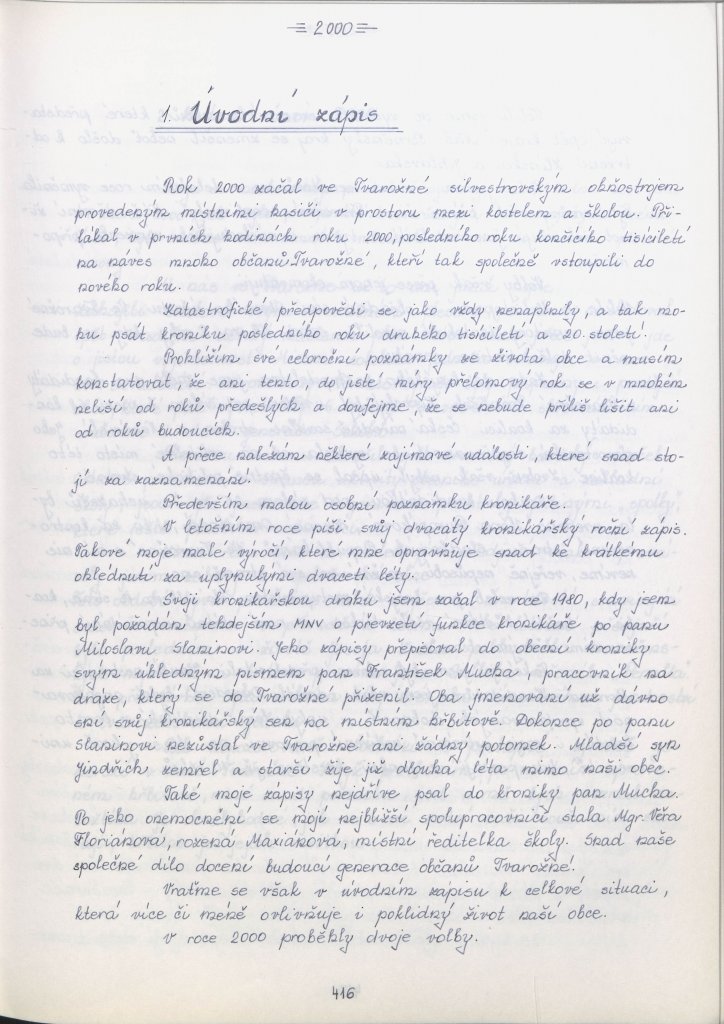 2000
1. Úvodní zápis
Rok 2000 začal ve Tvarožné silvestrovským ohňostrojem
provedeným místními hasiči v prostoru mezi kostelem a školou. Při-
lákal v prvních hodinách roku 2000, posledního roku končícího tisíciletí
na náves mnoho občanů Tvarožné, kteří tak společně vstoupili do
nového roku.
Katastrofické předpovědi se jako vždy nenaplnily, a tak mo-
hu psát kroniku posledního roku druhého tisíciletí a 20. století.
Prohlížím své celoroční poznámky ze života obce a musím
konstatovat, že ani tento, do jisté míry přelomový rok se v mnohém
neliší od roků předešlých a doufejme, že se nebude příliš lišit ani
od roků budoucích.
A přece nalézám některé zajímavé události, které snad sto-
jí za zaznamenání.
Především malou osobní poznámku kronikáře.
V letošním roce píši svůj dvacátý kronikářský roční zápis.
Takové moje malé výročí, které mne opravňuje snad ke krátkému
ohlédnutí za uplynulými dvaceti léty.
Svoji kronikářskou dráhu jsem začal v roce 1980, kdy jsem
byl požádán tehdejším MNV o převzetí funkce kronikáře po panu
Miloslavu Slaninovi. Jeho zápisy přepisoval do obecní kroniky
svým úhledným písmem pan František Mucha, pracovník na
dráze, který se do Tvarožné přiženil. Oba jmenovaní už dávno
sní svůj kronikářský sen na místním hřbitově. Dokonce po panu
Slaninovi nezůstal ve Tvarožné ani žádný potomek. Mladší syn
Jindřich zemřel a starší žije již dlouhá léta mimo naši obec.
Také moje zápisy nejdříve psal do kroniky pan Mucha.
Po jeho onemocnění se mojí nejbližší spolupracovnicí stala Mgr. Věra
Floriánová, rozená Maxiánová, místní ředitelka školy. Snad naše
společné dílo docení budoucí generace občanů Tvarožné!
Vraťme se však v úvodním zápisu k celkové situaci,
která více či méně ovlivňuje i poklidný život naší obce.
V roce 2000 proběhly dvoje volby.
416